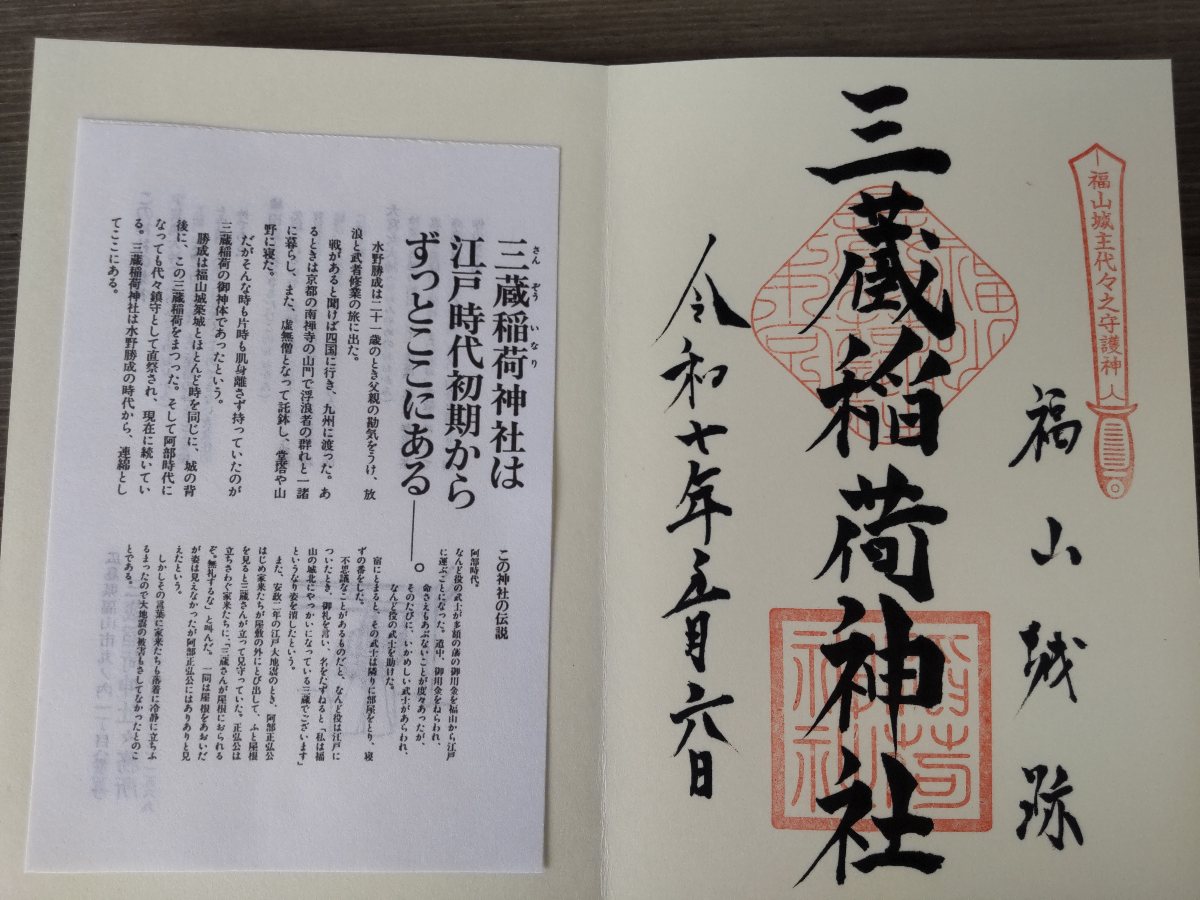 福山城主代々之守護神
福山城跡
三蔵稲荷神社
令和七年五月六日
さんぞういなり
三蔵稲荷神社は
江戸時代初期から
ずっとここにある――。
水野勝成は二十一歳のとき父親の勘気をうけ、放
浪と武者修業の旅に出た。
戦があると聞けば四国に行き、九州に渡った。あ
るときは京都の南禅寺の山門で浮浪者の群れと一諸
に暮らし、また、虚無僧となって託鉢し、堂塔や山
野に寝た。
だがそんな時も片時も肌身離さず持っていたのが
三蔵稲荷の御神体であったという。
勝成は福山城築城とほとんど時を同じに、城の背
後に、この三蔵稲荷をまつった。そして阿部時代に
なっても代々鎮守として直祭され、現在に続いてい
る。三蔵稲荷神社は水野勝成の時代から、連綿とし
てここにある。
この神社の伝説
阿部時代。
なんど役の武士が多額の藩の御用金を福山から江戸
に運ぶことになった。道中、御用金をねらわれ、
命さえもあぶないことが度々あったが、
そのたびに、いかめしい武士があらわれ、
なんど役の武士を助けた。
宿にとまると、その武士は隣りに部屋をとり、寝
ずの番をした。
不思議なことがあるものだと、なんど役は江戸に
ついたとき、御礼を言い、名をたずねると「私は福
山の城北にやっかいになっている三蔵でございます」
というなり姿を消したという。
また、安政二年の江戸大地震のとき、阿部正弘公
はじめ家来たちが屋敷の外にとび出して、ふと屋根
を見ると三蔵さんが立って見守っていた。正弘公は
立ちさわぐ家来たちに、「三蔵さんが屋根におられる
ぞ。無礼するな」と叫んだ。一同は屋根をあおいだ
が姿は見えなかったが阿部正弘公にはありありと見
えたという。
しかしその言葉に家来たちも落着に冷静に立ちふ
るまったので大地震の被害もさしてなかったとのこ
とである。